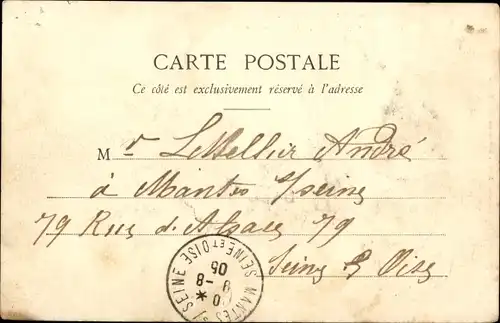 CARTE POSTALE
Ce côté est exclusivement réservé à l'adresse
Mr LeTellier André
à Mantes s/seine
79 Rue d'Alsace 79
Seine & Oise
MANTES S SEINE
SEINE ET OISE
8
05